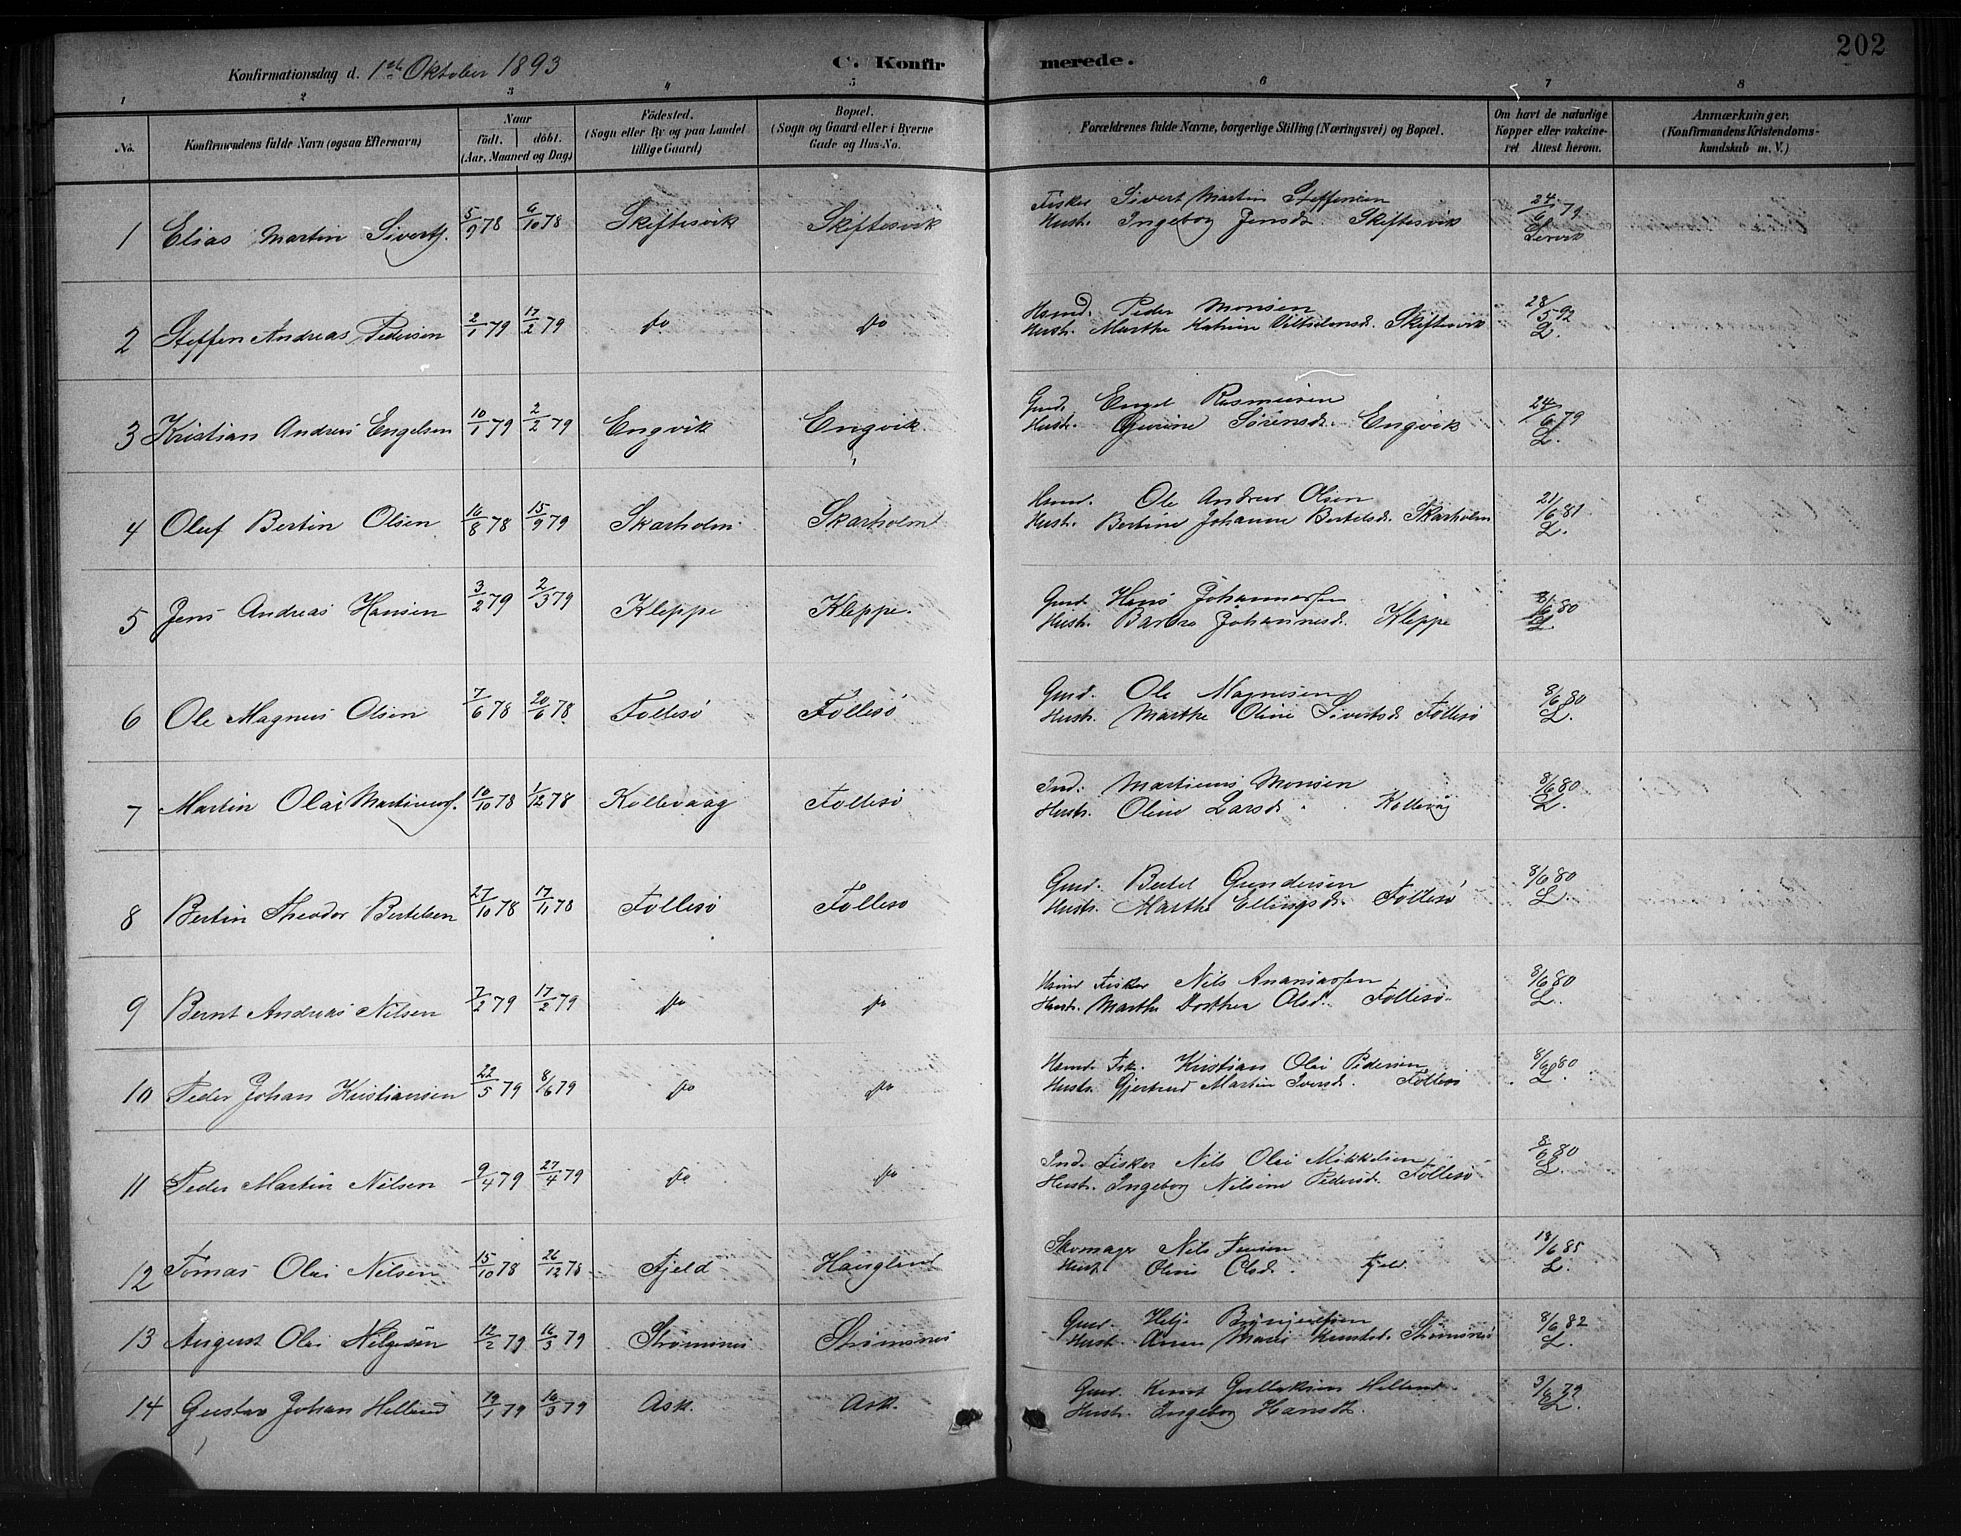 202
Konfirmationsdag d. 1ste Oktober 1893 C. Konfirmerede.
1 2 3 4 5 6 7 8
No.
Konfirmandens fulde Navn (ogsaa Efternavn)
Naar
födt. döbt.
(Aar, Maaned og Dag)
Födested.
(Sogn eller By og paa Landet
tillige Gaard)
Bopæl.
(Sogn og Gaard eller i Byerne
Gade og Hus-No.
Forældrenes fulde Navne, borgerlige Stilling (Næringsvei) og Bopæl.
Om havt de naturlige
Kopper eller vakcine-
ret Attest herom.
Anmærkninger.
(Konfirmandens Kristendoms-
kundskab m. V.)
1 Elias Martin Siverts. 5/9 78 6/10 78 Skiftesvik Skiftesvik
Fisker Sivert Martin Steffensen
Hustr. Ingeborg Jensd. Skiftesvik
24/6 79
Lervik
2 Steffen Andreas Pedersen 2/1 79 17/2 79 do do
Hamd. Peder Monsen
Hustr. Marthe Katrine Skiftesvik
28/5 92
L.
3 Kristian Andreas Engelsen 10/1 79 2/2 79 Engvik Engvik
Gmd. Engel Rasmussen
Hustr. Sörensd. Engvik
24/6 79
L.
4 Oluf Bertin Olsen 16/8 78 15/9 79 Skarholm Skarholm
Hamd. Ole Andreas Olsen
Hustr. Bertine Johanne Bertelsd. Skarholm
21/6 81
L.
5 Jens Andreas Hansen 3/2 79 2/3 79 Kleppe Kleppe.
Gmd. Hans Johannessen
Hustr. Barbro Johannesd. Kleppe
8/6 80
L.
6 Ole Magnus Olsen 7/6 78 20/6 78 Follesö Follesö
Gmd. Ole Magnesen
Hustr. Marthe Oline Sivertsd. Follesö
8/6 80
L.
7 Martin Olai Martinus. 10/10 78 1/12 78 Kollevaag Follesö
Ind. Martinus Monsen
Hustr. Oline Larsd. Kollevåg
8/6 80
L.
8 Bertin Theodor Bertelsen 27/10 78 17/11 78 Follesö Follesö
Gmd. Bertel Gundersen
Hustr. Marthe Ellingsd. Follesö
8/6 80
L.
9 Bernt Andreas Nilsen 7/2 79 17/2 79 do do
Fisker Nils Ananiassen
Hustr. Marthe Dorthea Olsd. Follesö
8/6 80
L.
10 Peder Johan Kristiansen 22/5 79 8/6 79 do do
Hamd. Fisk. Kristian Olai Pedersen
Hustr. Gjertrud Martin Iversd. Follesö
8/6 80
L.
11 Peder Martin Nilsen 9/4 79 27/4 79 do do
Ind. Fisker Nils Olai Mikkelsen
Hustr. Ingeborg Nilsine Pedersd. Follesö
8/6 80
L.
12 Tomas Olai Nilsen 15/10 78 26/12 78 Fjeld Haugland
Skomager Nils Jensen
Hust. Oline Olsd. Fjeld
18/6 85
L.
13 August Olai Helgesen 12/2 79 16/3 79 Strömsnes Strömsnes
Gmd. Helje
Hustr. Anna Marie Knutsd. Strömsnes
8/6 82
L.
14 Gustav Johan Helland 19/1 79 16/3 79 Ask. Ask.
Gmd. Knut Gullaksen Helland
Hustr. Ingeborg Hansdt.
3/6 79
L.